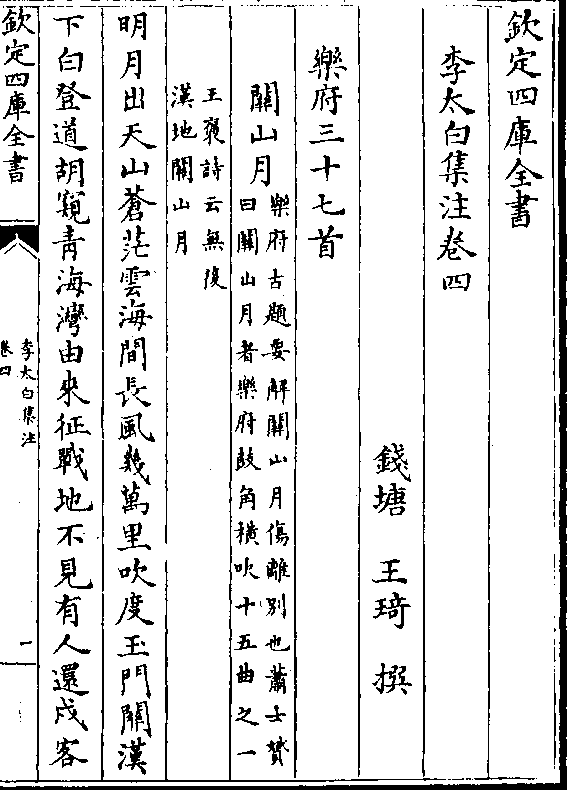 欽定四庫全書
李太白集注卷四
錢塘 王琦 撰
樂府三十七首
關山月
樂府古題要解關山月傷離别也蕭士贇
曰關山月者樂府鼓角横吹十五曲之一
王褒詩云無復
漢地關山月
明月出天山蒼茫雲海間長風幾萬里吹度玉門關漢
下白登道胡窺青海灣由來征戰地不見有人還戍客
欽定四庫全書
李太白集注
卷四
一